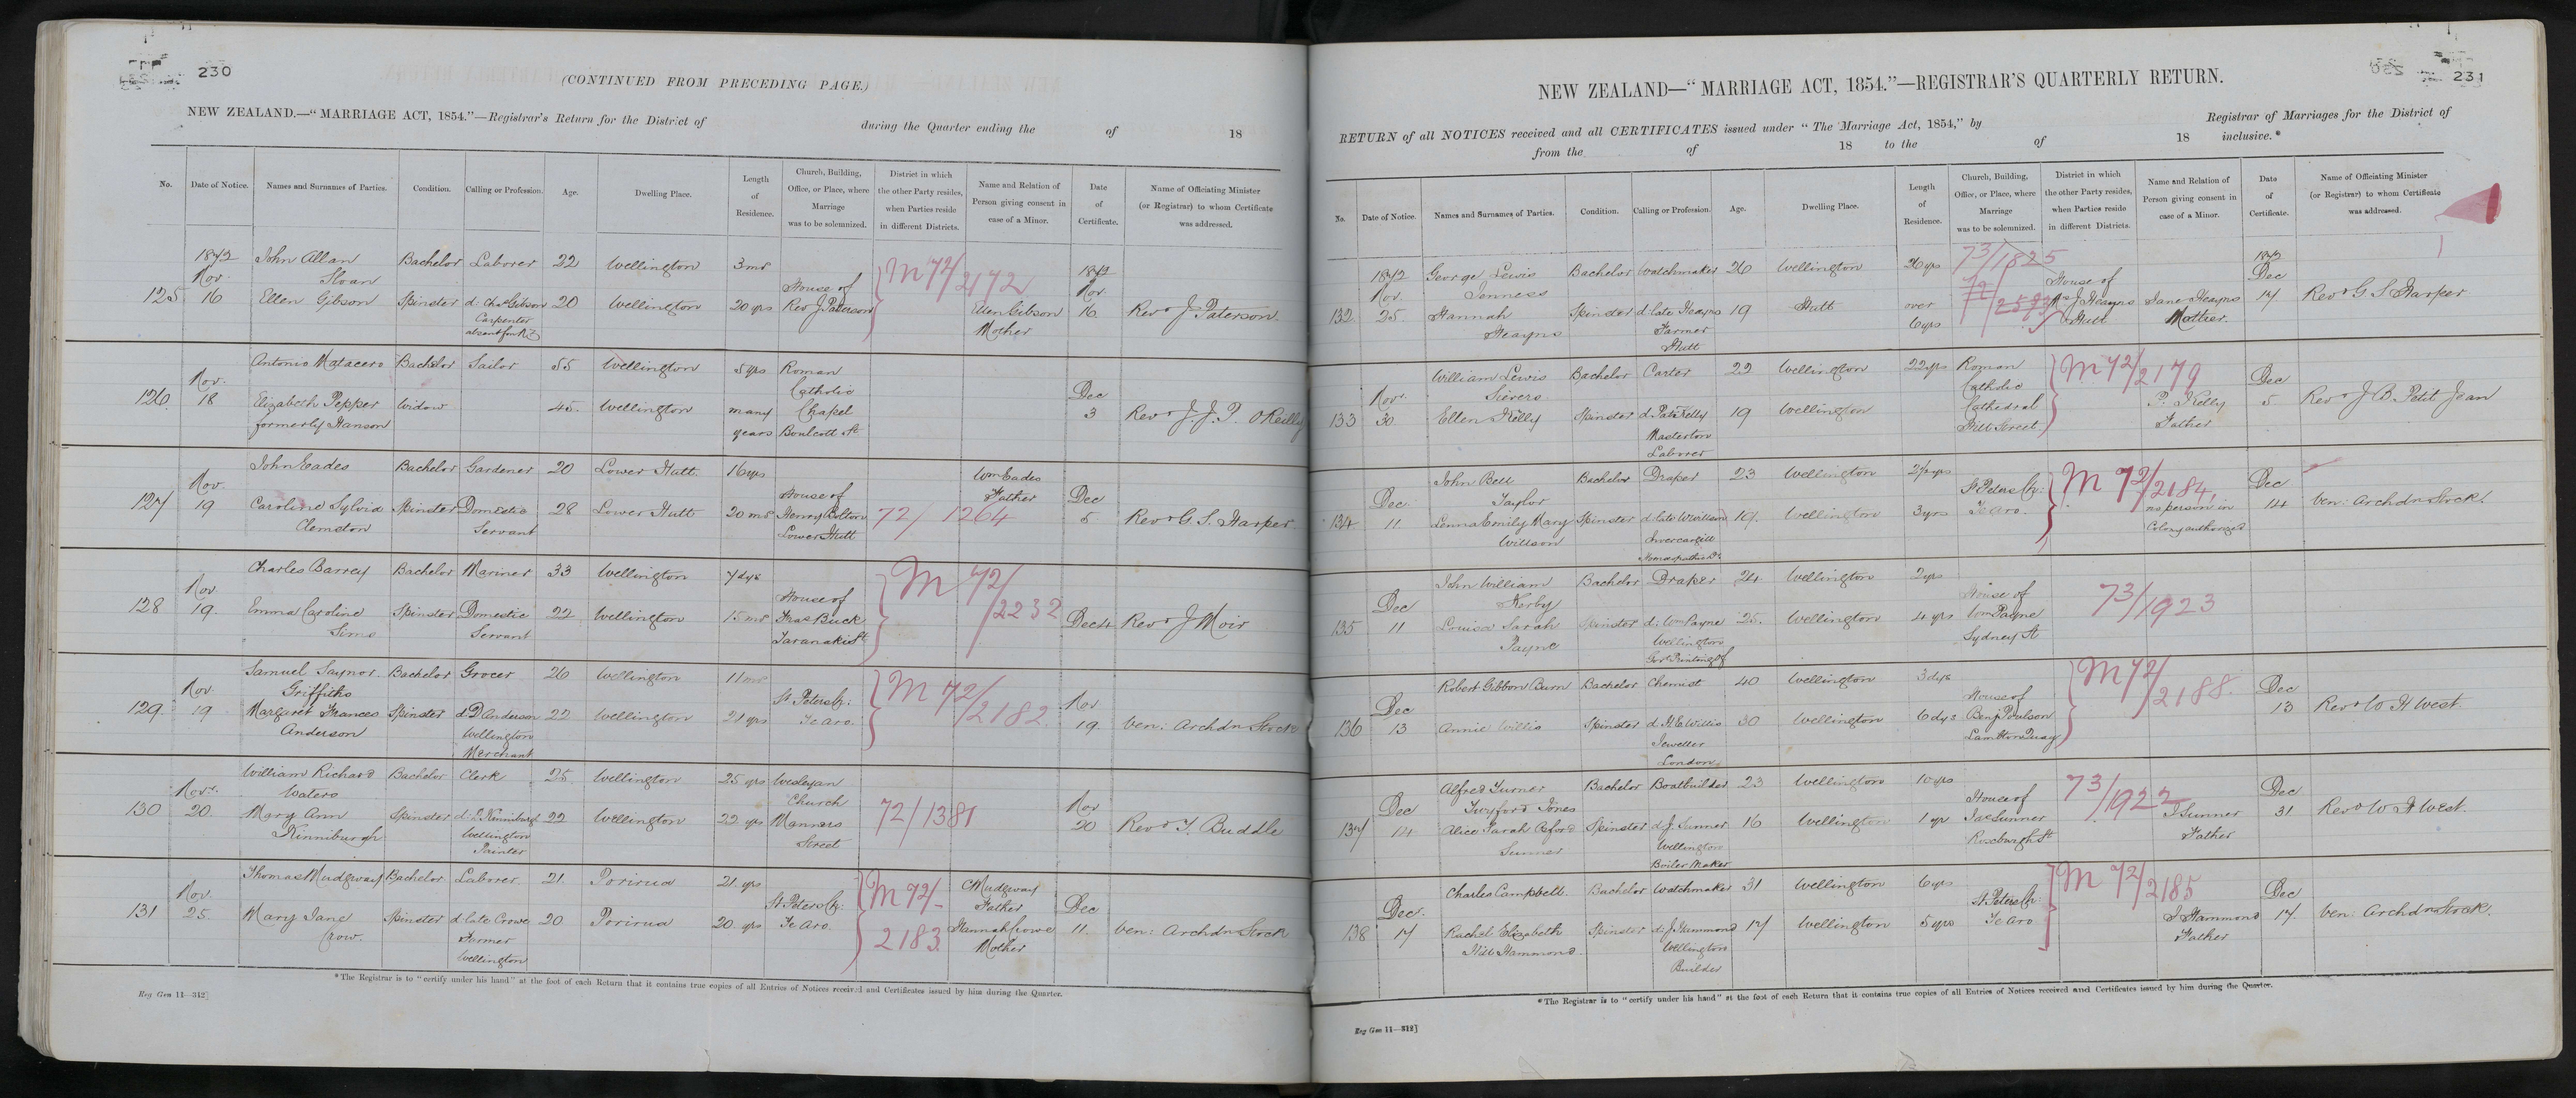 230
(CONTINUED FROM PRECEDING PAGE.)
NEW ZEALAND.—“MARRIAGE ACT, 1854.”—Registrar's Return for the District of during the Quarter ending the of 18
No. Date of Notice. Names and Surnames of Parties. Condition. Calling or Profession. Age. Dwelling Place. Length of Residence. Church, Building, Office, or Place, where Marriage was to be solemnized. District in which the other Party resides, when Parties reside in different Districts. Name and Relation of Person giving consent in case of a Minor. Date of Certificate. Name of Officiating Minister (or Registrar) to whom Certificate was addressed.
125 1872 Nov. 16 John Allan Sloan Bachelor Laborer 22 Wellington 3 mos House of Rev J Paterson M 72/2172 1872 Nov. 16 Revd J Paterson
Ellen Gibson Spinster d: Chas Gibson Carpenter absent from N.Z 20 Wellington 20 yrs Ellen Gibson Mother
126 Nov. 18 Antonio Matacero Bachelor Sailor 55 Wellington 5 yrs Roman Catholic Chapel Boulcott St Dec 3 Revd J. J. P. O'Reilly
Elizabeth Pepper formerly Hanson Widow 45 Wellington many years
127 Nov 19 John Eades Bachelor Gardener 20 Lower Hutt 16 yrs House of Henry Bolton Lower Hutt 72/1264 Wm Eades Father Dec 5 Revd G. S. Harper
Caroline Sylvia Clemston Spinster Domestic Servant 28 Lower Hutt 20 mos
128 Nov 19 Charles Barrey Bachelor Mariner 33 Wellington 7 dys House of Thos Buck Taranaki St M 72/2232 Dec 4 Revd J Moir
Emma Caroline Sims Spinster Domestic Servant 22 Wellington 15 mos
129 Nov 19 Samuel Saynor Griffiths Bachelor Grocer 26 Wellington 11 mos St Peters Ch: Te Aro M 72/2182 Nov 19 Ven: Archdn Stock
Margaret Frances Anderson Spinster d: D Anderson Wellington Merchant 22 Wellington 21 yrs
130 Novr. 20 William Richard Waters Bachelor Clerk 25 Wellington 25 yrs Wesleyan Church Manners Street 72/1381 Nov 20 Revd T. Buddle
Mary Ann Kinniburgh Spinster d: D. Kinniburgh Wellington Painter 22 Wellington 22 yrs
131 Nov. 25 Thomas Mudgway Bachelor Laborer 21 Porirua 21 yrs St Peters Ch: Te Aro M 72/2183 C Mudgway Father Dec 11 Ven: Archdn Stock
Mary Jane Crow. Spinster d: late Crowe Farmer Wellington 20 Porirua 20 yrs Hannah Crowe Mother
*The Registrar is to “certify under his hand” at the foot of each Return that it contains true copies of all Entries of Notices received and Certificates issued by him during the Quarter.
Reg Gen 11—312]
231
NEW ZEALAND—“MARRIAGE ACT, 1854.”—REGISTRAR'S QUARTERLY RETURN.
RETURN of all NOTICES received and all CERTIFICATES issued under “The Marriage Act, 1854,” by Registrar of Marriages for the District of
from the of 18 to the of 18 inclusive.*
No. Date of Notice. Names and Surnames of Parties. Condition. Calling or Profession. Age. Dwelling Place. Length of Residence. Church, Building, Office, or Place, where Marriage was to be solemnized. District in which the other Party resides, when Parties reside in different Districts. Name and Relation of Person giving consent in case of a Minor. Date of Certificate. Name of Officiating Minister (or Registrar) to whom Certificate was addressed.
132 1872 Nov. 25 George Lewis Jenness Bachelor Watchmaker 26 Wellington 26 yrs 73/1825 72/2593 House of Mrs J Heayns Hutt 1872 Dec 14 Revd G S Harper
Hannah Heayns Spinster d: late Heayns Farmer Hutt 19 Hutt over 6 yrs Jane Heayns Mother
133 Novr. 30 William Lewis Sievers Bachelor Carter 22 Wellington 22 yrs Roman Catholic Cathedral Hill Street M 72/2179 Dec 5 Revd J B Petit Jean
Ellen Kelly Spinster d: Patk Kelly Masterton Laborer 19 Wellington P. Kelly Father
134 Dec 11 John Bell Taylor Bachelor Draper 23 Wellington 2½ yrs St Peters Ch: Te Aro M 72/2184 Dec 14 Ven: Archdn Stock
Lenna Emily Mary Willson Spinster d: late W Willson Invercargill Homeopathic Dr 19 Wellington 3 yrs no person in Colony authorized
135 Dec 11 John William Kerby Bachelor Draper 24 Wellington 2 yrs House of Wm Payne Sydney St 73/1923
Louisa Sarah Payne Spinster d: Wm Payne Wellington Govt Printing Of 25 Wellington 4 yrs
136 Dec 13 Robert Gibbon Burn Bachelor Chemist 40 Wellington 3 dys House of Benj Poulson Lambton Quay M 72/2188 Dec 13 Revd W H West
Annie Willis Spinster d: H E Willis Jeweller London 30 Wellington 6 dys
137 Dec 14 Alfred Turner Twyford Jones Bachelor Boatbuilder 23 Wellington 10 yrs House of Jas Sunner Roxburgh St 73/1922 Dec 31 Revd W H West
Alice Sarah Oxford Sunner Spinster d: J. Sunner Wellington Boiler Maker 16 Wellington 1 yr J Sunner Father
138 Dec. 17 Charles Campbell Bachelor Watchmaker 31 Wellington 6 yrs St Peters Ch: Te Aro M 72/2185 Dec 17 Ven: Archdn Stock
Rachel Elizabeth Hammond Spinster d: J Hammond Wellington Builder 17 Wellington 5 yrs J Hammond Father
*The Registrar is to “certify under his hand” at the foot of each Return that it contains true copies of all Entries of Notices received and Certificates issued by him during the Quarter.
Reg Gen 11—312]